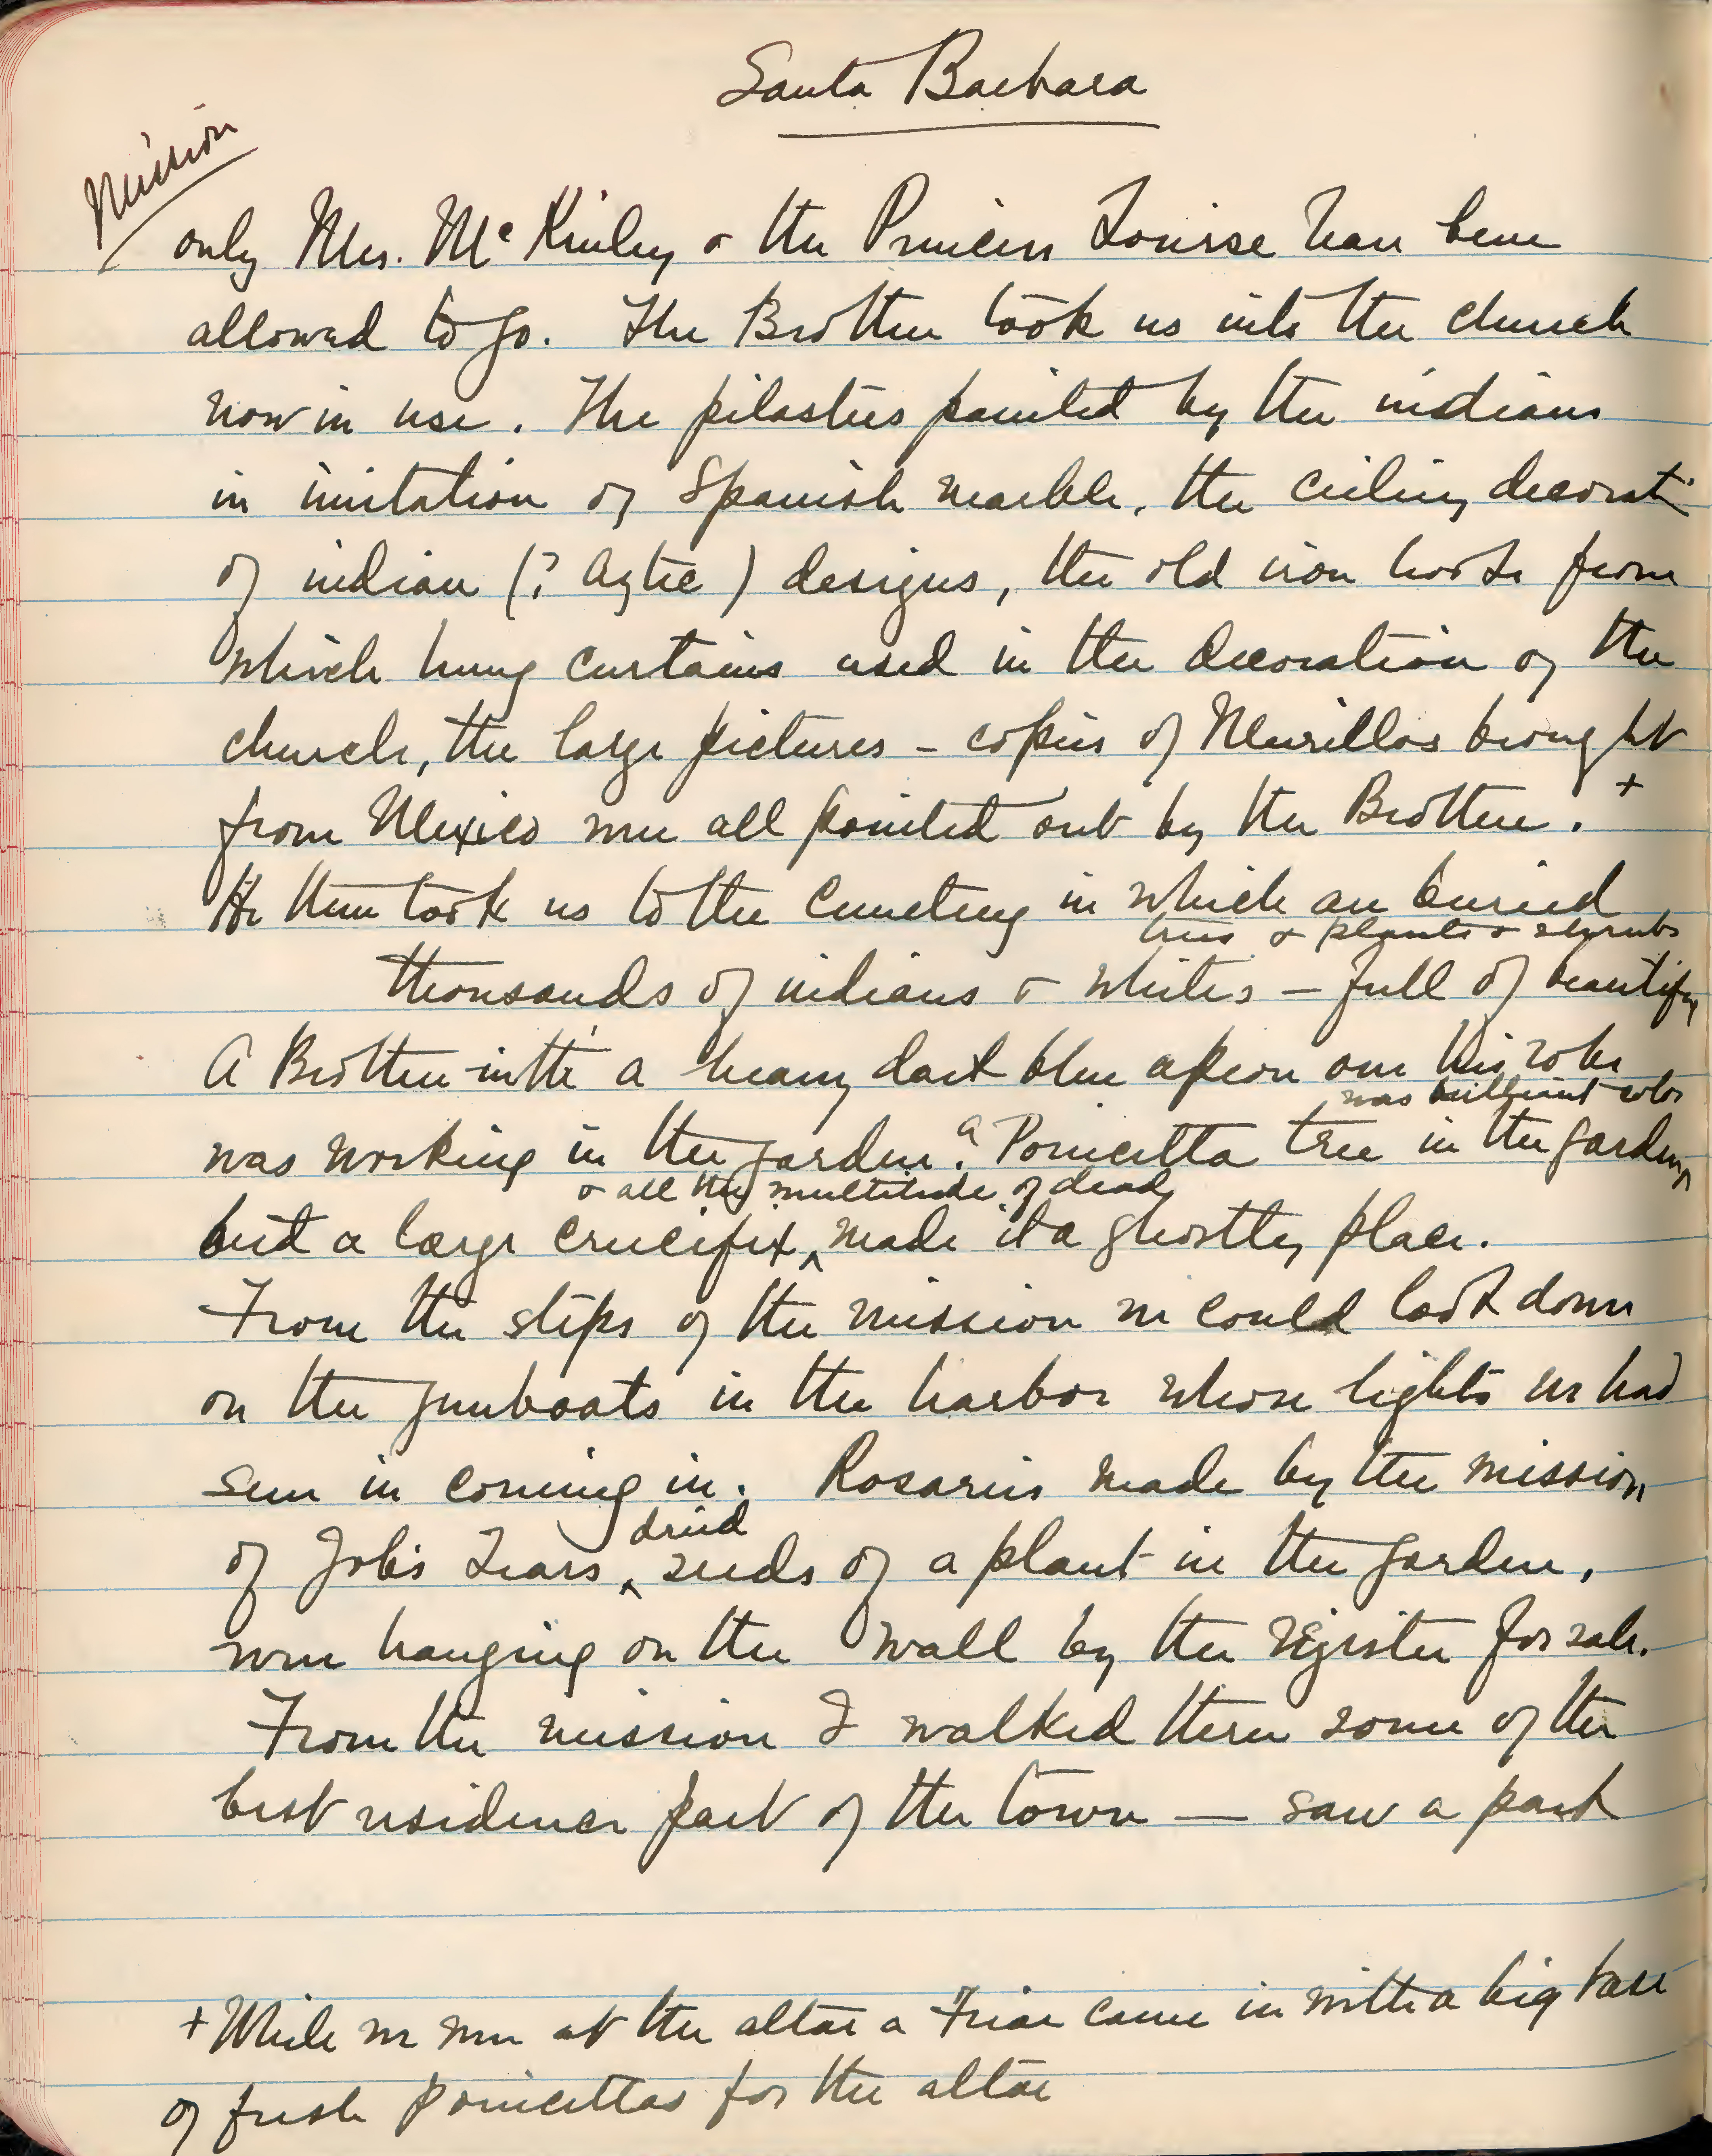 Santa Barbara
Mission
only Mrs. McKinley & the Princess Louise have been
allowed to go. The Brother took us into the church
now in use. The pilasters painted by the indians
in imitation of Spanish marble, the ceiling decorat
of indian (? Aztec) designs, the old iron hooks from
which hung curtains used in the decoration of the
church, the large pictures - copies of Murillos brought
from Mexico were all pointed out by the Brother. +
He then took us to the Cemetery in which are buried
trees & plants & shrubs
thousands of indians & whites - full of beautiful
A Brother with a heavy dark blue apron over his robe
was brilliant color
was working in the garden. A Poincetta tree in the garden
& all the multitude of dead
but a large crucifix ^ made it a ghostly place.
From the steps of the mission we could look down
on the gunboats in the harbor whose lights we had
seen in coming in. Rosaries made by the mission
dried
of Job's Tears ^ seeds of a plant in the garden,
were hanging on the wall by the register for sale.
From the mission I walked thru some of the
best residence part of the town — saw a park
+ While we were at the altar a Friar came in with a big vase
of fresh poincettas for the altar